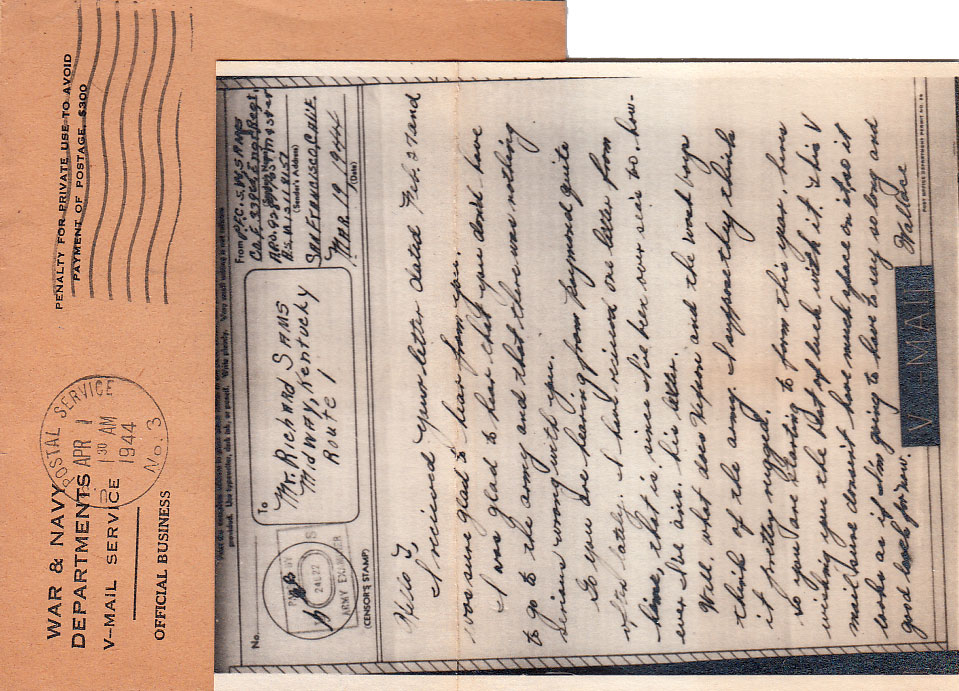 WAR & NAVY
DEPARTMENTS
V-MAIL SERVICE
OFFICIAL BUSINESS
POSTAL SERVICE
APR 1
1 30 AM
1944
No. 3
PENALTY FOR PRIVATE USE TO AVOID
PAYMENT OF POSTAGE, $300
No.
24022
ARMY EXAMINER
(CENSOR'S STAMP)
To
Mr. Richard Sams
Midway, Kentucky
Route 1
From
PFC. S. W. SAMS
Co. F.
(Sender's Address)
San Francisco, Calif.
Mar. 19 1944
(Date)
Hello
I received your letter dated Feb. 27 and
was sure glad to hear from you.
I was glad to hear that you don't have
to go to the army and that there was nothing
serious wrong with you.
So you are hearing from Raymond quite
often lately. I have received one letter from
him, that is since I've been over seas too, how-
ever I've ans. his letter.
Well, what does and the wood boys
think of the army. I suppose they think
it pretty rugged.
So you are starting to farm this year, here
wishing you the best of luck with it. This V
mail sure doesn't have much space on it, so it
looks as if I'm going to have to say so long and
good luck for now.
Wallace
V···—MAIL
POST OFFICE DEPARTMENT PERMIT NO.